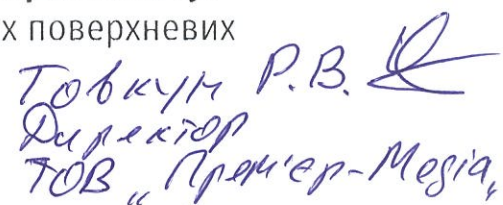 х поверхневих
Товкун Р.В.
Директор
ТОВ „Прем'єр-Медіа„